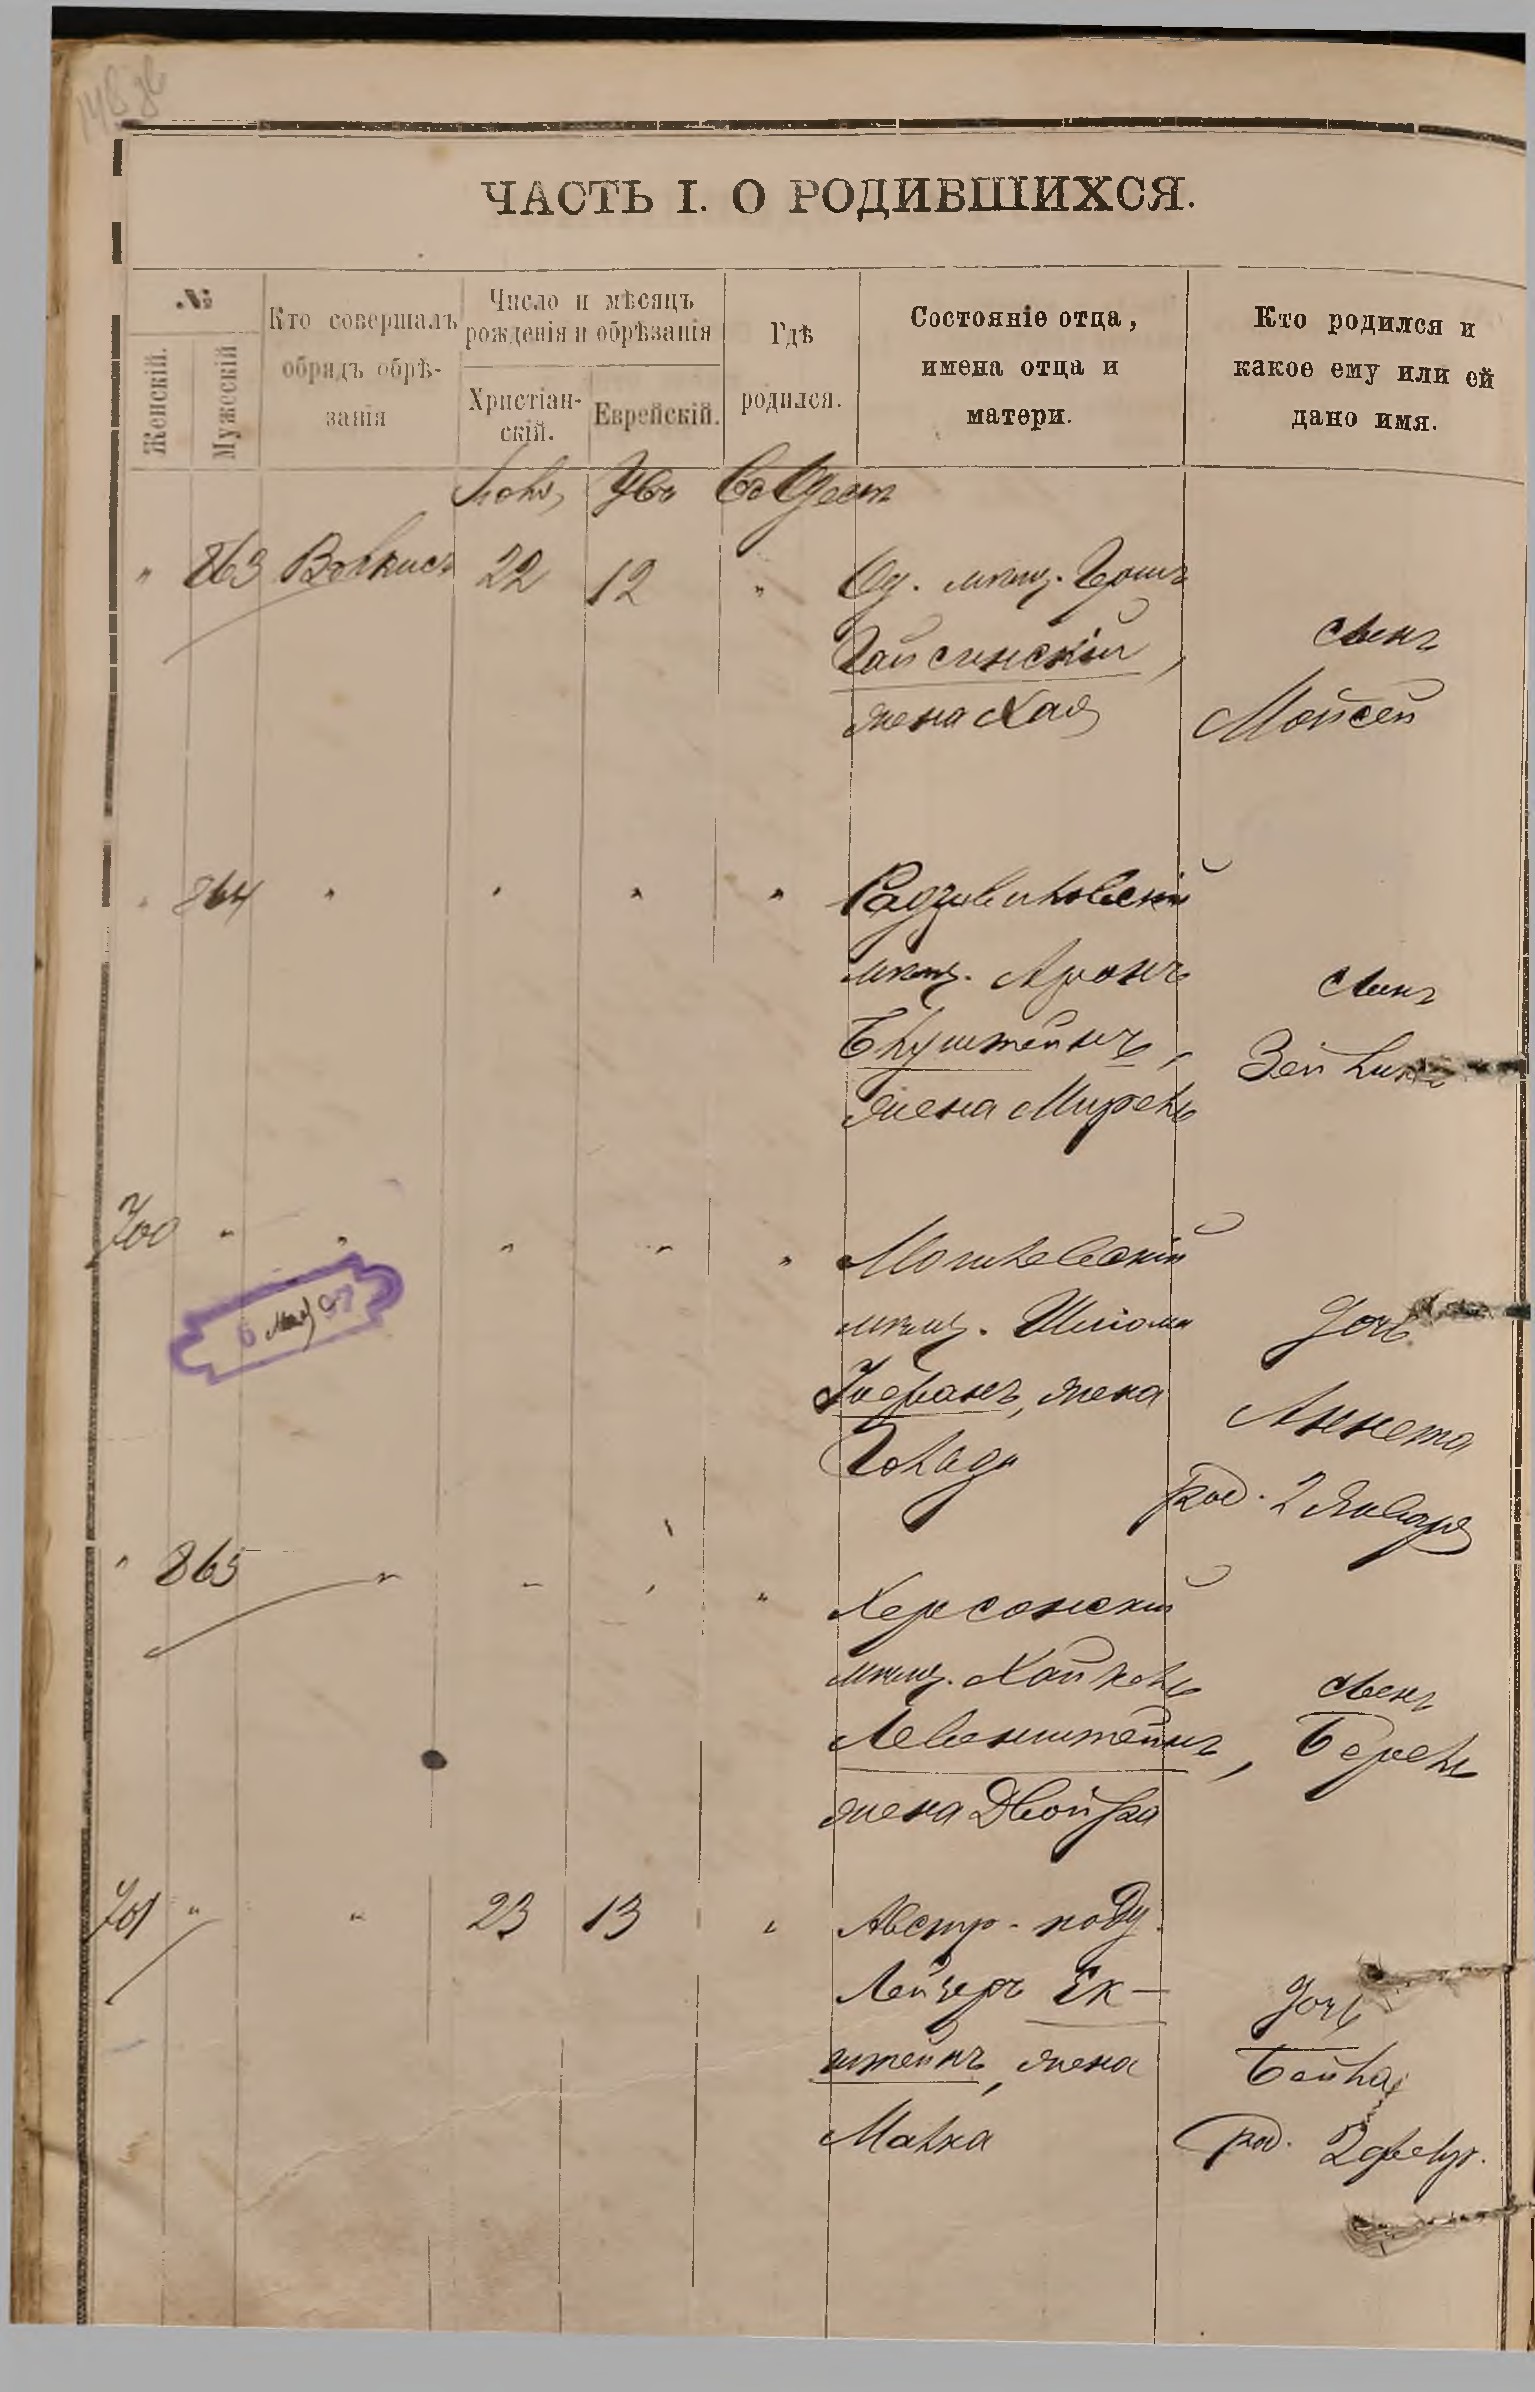 ЧАСТЬ I. О РОДИВШИХСЯ.
№
Женскій.
Мужескій
Кто совершалъ
обрядъ обрѣ-
занія
Число и мѣсяцъ
рожденія и обрѣзанія
Христіан-
скій.
Еврейскій.
Гдѣ
родился.
Состояніе отца,
имена отца и
матери.
Кто родился и
какое ему или ей
дано имя.
" 863 22 12 " Од. мѣщ. Гершъ
Гайсинскій,
жена Хая
сынъ
Мойсей
" 864 " " " " Радзивиловскій
мѣщ. Аронъ
Блуштейнъ,
жена Мирель
сынъ
700 " " " " " Могилевскій
мѣщ. Шліома
жена
Голда
Дочь
Аннета
род. 2 Января
" 865 " " " " Херсонскій
мѣщ. Хайкель
Левенштейнъ,
жена Двойра
сынъ
Берель
701 " " 23 13 " Австр. подд.
Лейзеръ Ек-
штейнъ, жена
Малка
Дочь
Бейла
род. 2 февр.